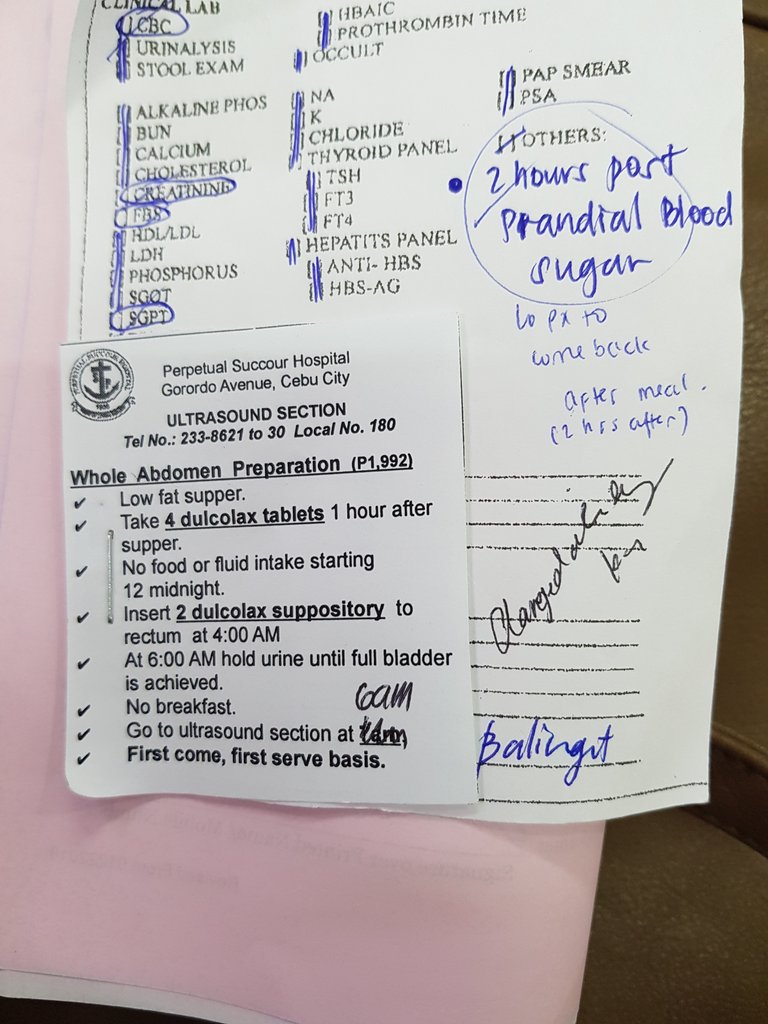 CLINICAL LAB
CBC
URINALYSIS
STOOL EXAM
ALKALINE PHOS
BUN
CALCIUM
CHOLESTEROL
CREATININE
FBS
HDL/LDL
LDH
PHOSPHORUS
SGOT
SGPT
HBAIC
PROTHROMBIN TIME
OCCULT
NA
K
CHLORIDE
THYROID PANEL
TSH
FT3
FT4
HEPATITS PANEL
ANTI- HBS
HBS-AG
PAP SMEAR
PSA
OTHERS:
2 hours post
prandial Blood
sugar
px to
come back
after meal.
(2 hrs after)
Balingit
PERPETUAL SUCCOUR HOSPITAL
Perpetual Succour Hospital
Gorordo Avenue, Cebu City
ULTRASOUND SECTION
Tel No.: 233-8621 to 30 Local No. 180
Whole Abdomen Preparation (P1,992)
✔ Low fat supper.
✔ Take 4 dulcolax tablets 1 hour after
supper.
✔ No food or fluid intake starting
12 midnight.
✔ Insert 2 dulcolax suppository to
rectum at 4:00 AM
✔ At 6:00 AM hold urine until full bladder
is achieved.
✔ No breakfast.
6am
✔ Go to ultrasound section at
✔ First come, first serve basis.